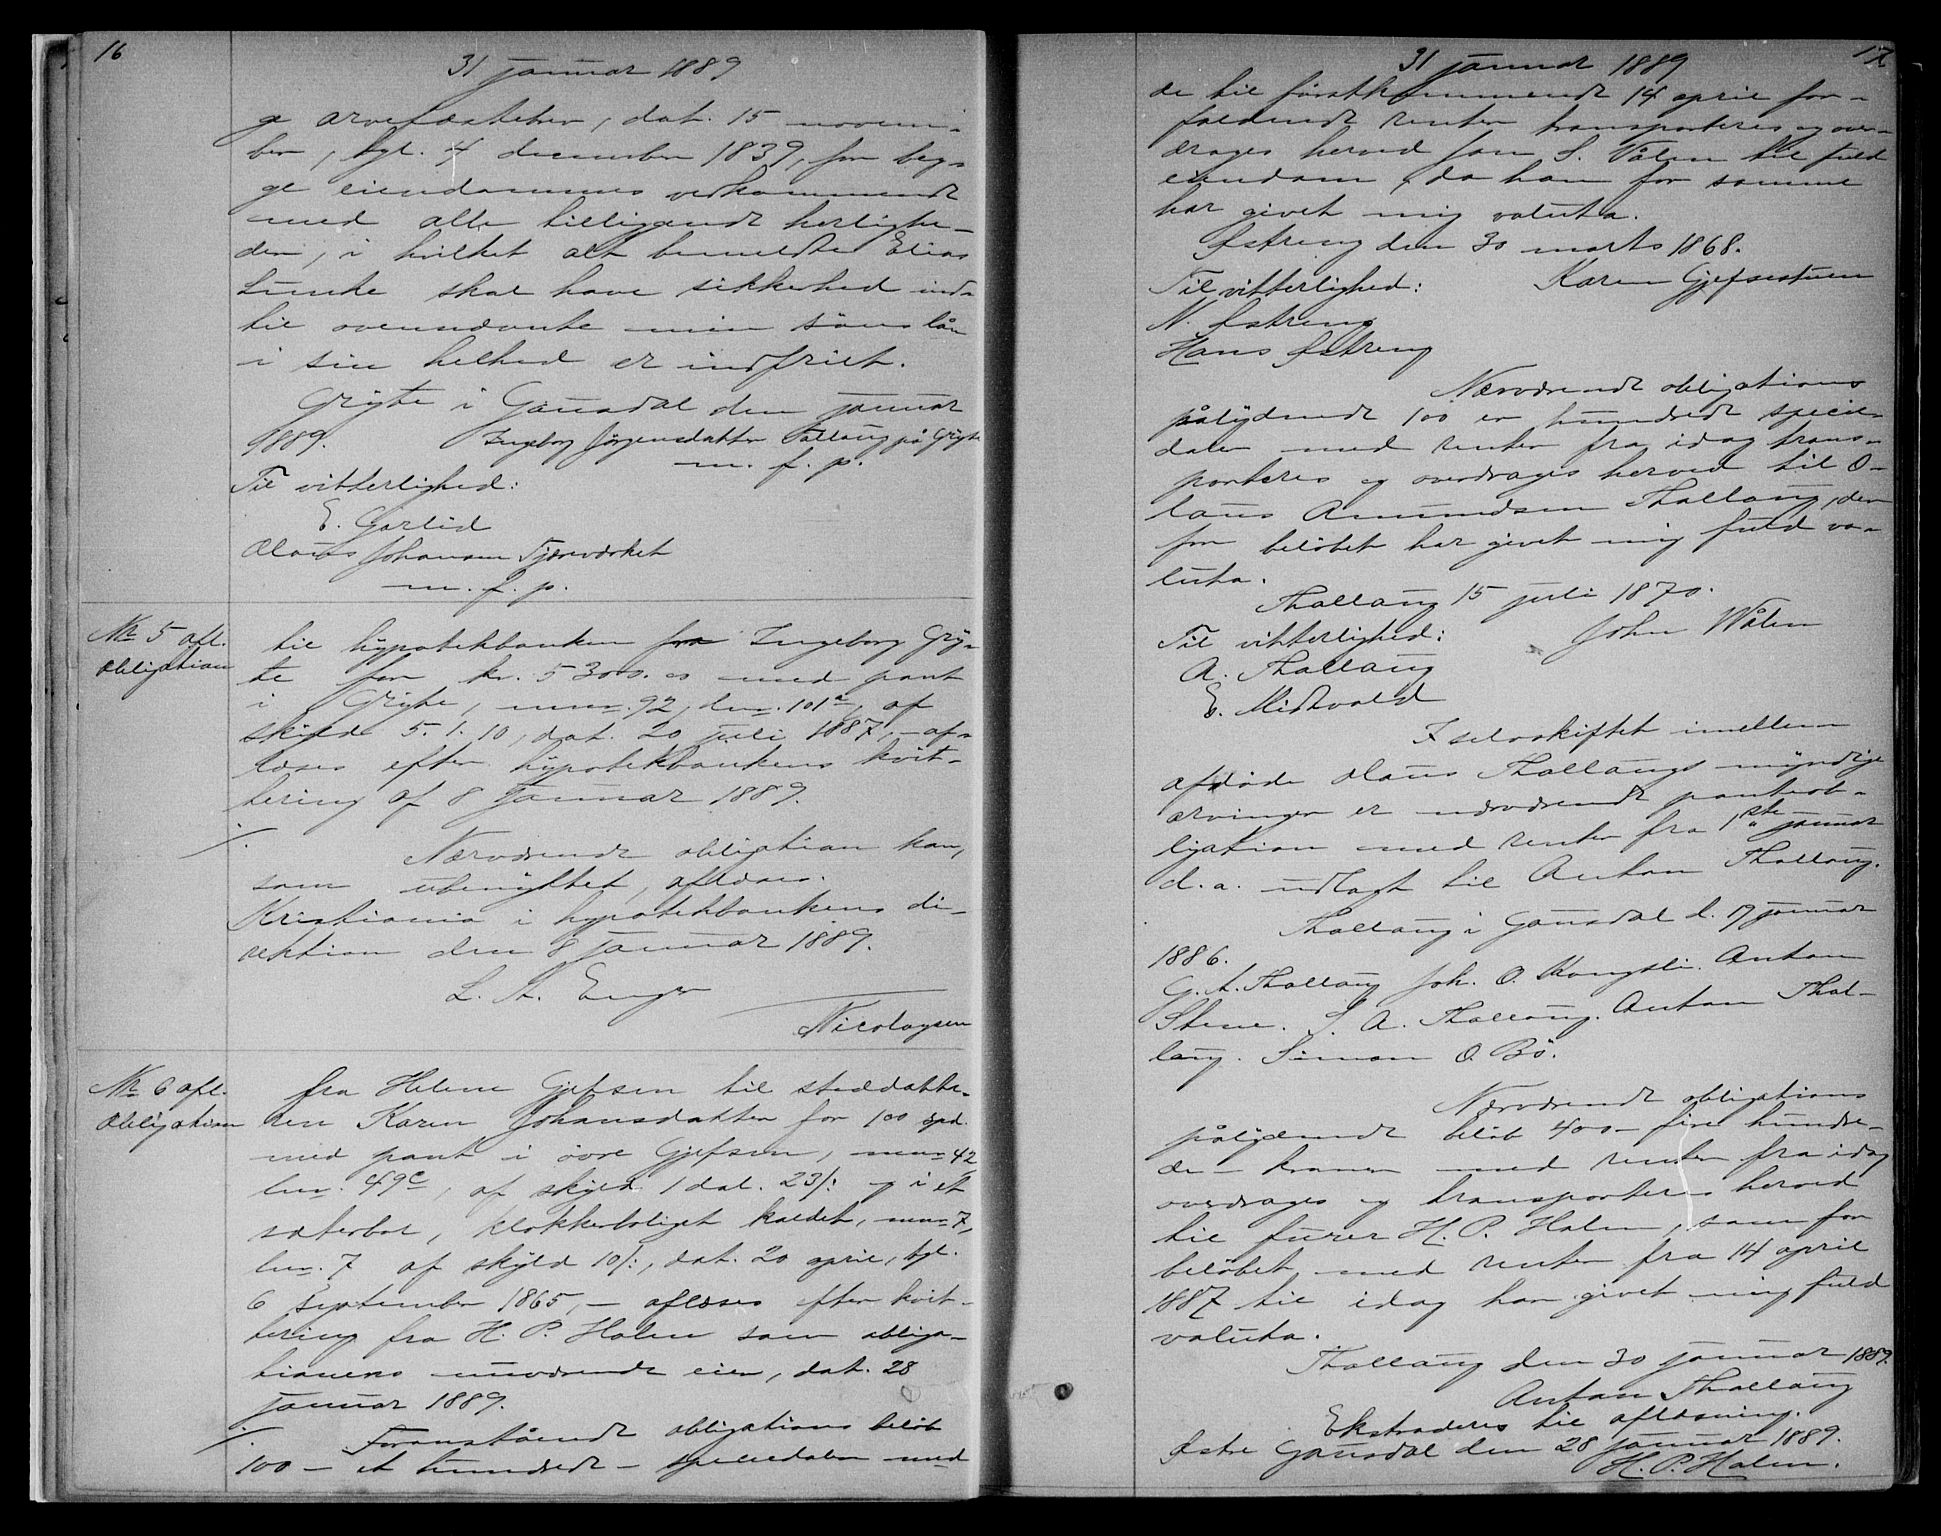 16
31 januar 1889
ge arvefæsteber, dat. 15 novem-
ber, tgl. 4 december 1839, for beg-
ge eiendommes vedkommende
med alle tilligende herlighe-
der, i hvilket alt bemeldte Elias
Lunke skal have sikkerhed ind-
til ovennævnte min søns lån
i sin helhed er indfriet.
Gryte i Gausdal den januar
1889. Ingeborg Jørgensdatter Tallaug på Gryte
m. f. p.
Til vitterlighed:
E. Garlid
Olaus Johansen Tjæreværket
m. f. p.
No 5 afl.
Obligation
til hypotekbanken fra Ingeborg Gry-
te for kr. 5300.00 med pant
i Gryte, mno. 92, lno. 101a, af
skyld 5. 1. 10, dat. 20 juli 1887, – af-
læses efter hypotekbankens kvit-
tering af 8 januar 1889.
./.
Nærværende obligation kan,
som ubenyttet, aflæses.
Kristiania i hypotekbankens di-
rektion den 8 januar 1889.
L. A. Enger
Nicolaysen
No 6 afl.
Obligation
fra Helene Gjefsen til steddatte-
ren Karen Johansdatter for 100 spd.
med pant i øvre Gjefsen, mno 42
lno. 49c, af skyld 1 dal. 23/: og i et
sæterbol, klokkerboliget kaldet, mno 7,
lno. 7 af skyld 10/:, dat. 20 april, tgl.
6 september 1865, – aflæses efter kvit-
tering fra H. P. Holen som obliga-
tionens nuværende eier, dat. 28
januar 1889.
./.
Foranstående obligations beløb
100 – et hundrede – speciedaler med
17
31 januar 1889
de til førstkommende 14 april for-
faldende renter transporteres og over-
drages herved Jon S. Vålen til fuld
eiendom, da han for samme
har givet mig valuta.
Østreng den 30 marts 1868.
Til vitterlighed: Karen Gjefsestuen
N. Østreng
Hans Østreng
Nærværende obligations
pålydende 100 er hundrede specie-
daler med renter fra idag trans-
porteres og overdrages herved til O-
laus Amundsen Thallaug, der
for beløbet har givet mig fuld va-
luta.
Thallaug 15 juli 1870.
Til vitterlighed: John Wålen
A. Thallaug
E. Midtvold
I selvskiftet imellem
afdøde Olaus Thallaugs myndige
arvinger er nærværende panteob-
ligation med renter fra 1ste januar
d. a. udlagt til Anton Thallaug.
Thallaug i Gausdal d. 19 januar
1886.
G. A. Thallaug Joh. O. Kongsli. Anton
Stene. S. A. Thallaug. Anton Thal-
laug. Simon O. Bø.
Nærværende obligations
pålydende beløb 400 – fire hundre-
de – kroner med renter fra idag
overdrages og transporteres herved
til furer H. P. Holen, som for
beløbet med renter fra 14 april
1887 til idag har givet mig fuld
valuta.
Thallaug den 30 januar 1889.
Anton Thallaug
Ekstraderes til aflæsning.
Østre Gausdal den 28 januar 1889.
H. P. Holen.